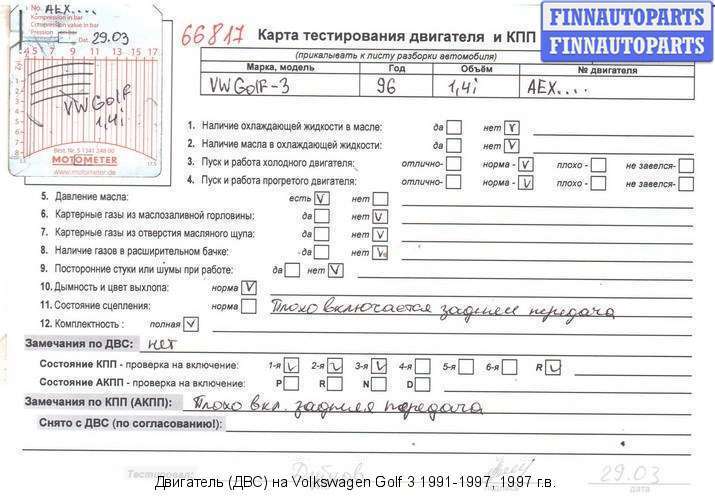 No. AEX....
Kompression in bar
Compression value in bar
Pression en bar
Dat. 29.03
4 5 7 9 11 13 15 17
VW Golf
1,4i
Best. Nr. 5 1341 348 00
MOTOMETER
www.motometer.de
66817 Карта тестирования двигателя и КПП
FINNAUTOPARTS
FINNAUTOPARTS
(прикалывать к листу разборки автомобиля)
Марка, модель Год Объём № двигателя
VW Golf-3 96 1,4i AEX....
1. Наличие охлаждающей жидкости в масле: да нет V
2. Наличие масла в охлаждающей жидкости: да нет V
3. Пуск и работа холодного двигателя: отлично- норма - V плохо - не завелся-
4. Пуск и работа прогретого двигателя: отлично- норма - V плохо - не завелся-
5. Давление масла: есть V нет
6. Картерные газы из маслозаливной горловины: да нет V
7. Картерные газы из отверстия масляного щупа: да нет V
8. Наличие газов в расширительном бачке: да нет V
9. Посторонние стуки или шумы при работе: да нет V
10. Дымность и цвет выхлопа: норма V
11. Состояние сцепления: норма Плохо включается задняя передача
12. Комплектность : полная V
Замечания по ДВС: нет
Состояние КПП - проверка на включение: 1-я V 2-я V 3-я V 4-я 5-я 6-я R V
Состояние АКПП - проверка на включение: P R N D
Замечания по КПП (АКПП): Плохо вкл. задняя передача
Снято с ДВС (по согласованию!):
Тестировал: 29.03
подпись дата
Двигатель (ДВС) на Volkswagen Golf 3 1991-1997, 1997 г.в.